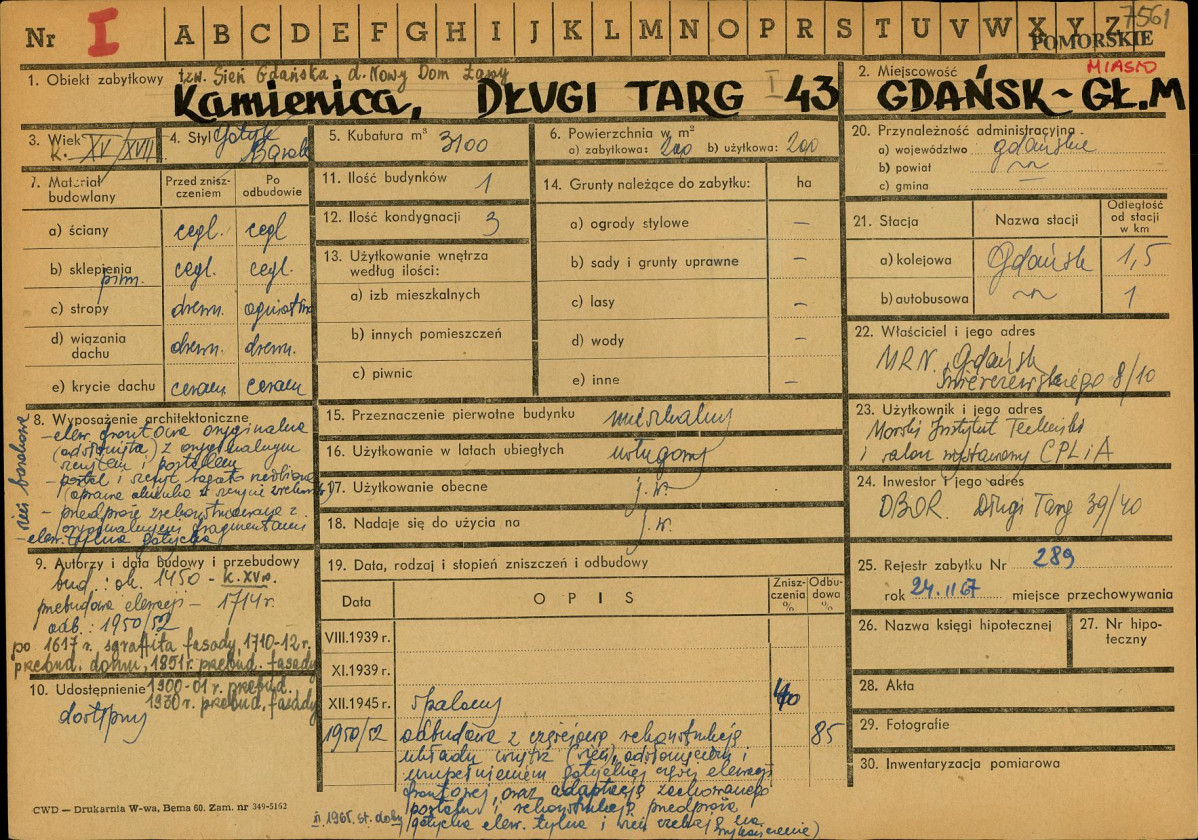 Nr I A B C D E F G H I J K L M N O P R S T U V W X Y Z 7561
POMORSKIE
MIASTO
1. Obiekt zabytkowy tzw. Sień Gdańska, d. Nowy Dom Ławy
Kamienica, DŁUGI TARG I 43
2. Miejscowość
GDAŃSK - GŁ. M
3. Wiek
k. XV/XVII
4. Styl gotyk
Barok
5. Kubatura m³ 3100
6. Powierzchnia w m²
a) zabytkowa: 200 b) użytkowa: 200
7. Materiał budowlany
Przed zniszczeniem
Po odbudowie
a) ściany cegl. cegl
b) sklepienia cegl. cegl.
piwn.
c) stropy drewn. ogniotrw
d) wiązania dachu drewn. drewn.
e) krycie dachu ceram ceram
8. Wyposażenie architektoniczne
- elew. frontowa oryginalna
(odsłonięta) z oryginalnym
- portal i szczyt bogato
- przedproże zrekonstruowane z
oryginalnymi fragmentami
elew. tylna gotycka
- sień barokowa
9. Autorzy i data budowy i przebudowy
bud.: ok. 1450 - k. XV w.
przebudowa elewacji - 1714 r.
odb.: 1950/52
po 1617 r. sgraffita fasady, 1710-12 r.
przebud. domu, 1851 r. przebud. fasady
1900-01 r. przebud.
1930 r. przebud. fasady
10. Udostępnienie
dostępny
11. Ilość budynków 1
12. Ilość kondygnacji 3
13. Użytkowanie wnętrza według ilości:
a) izb mieszkalnych
b) innych pomieszczeń
c) piwnic
14. Grunty należące do zabytku: ha
a) ogrody stylowe —
b) sady i grunty uprawne —
c) lasy —
d) wody —
e) inne —
15. Przeznaczenie pierwotne budynku mieszkalny
16. Użytkowanie w latach ubiegłych usługowy
17. Użytkowanie obecne j. w.
18. Nadaje się do użycia na j. w.
19. Data, rodzaj i stopień zniszczeń i odbudowy
Data OPIS Zniszczenia % Odbudowa %
VIII.1939 r.
XI.1939 r.
XII.1945 r. spalony
1950/52 odbudowa z częściową rekonstrukcją 85
układu wnętrz (sień), odsłonięciem i
uzupełnieniem gotyckiej części elewacji
frontowej, oraz adaptacją zachowanego
portalu i rekonstrukcją przedproża
gotycka elew. tylna i sień czekają na
wykończenie)
1965, st. dobry
20. Przynależność administracyjna
a) województwo gdańskie
b) powiat
c) gmina —
21. Stacja Nazwa stacji Odległość od stacji w km
a) kolejowa Gdańsk 1,5
b) autobusowa 1
22. Właściciel i jego adres
MRN. Gdańsk
Świerczewskiego 8/10
23. Użytkownik i jego adres
Morski Instytut
i salon wystawowy CPLiA
24. Inwestor i jego adres
DBOR. Długi Targ 39/40
25. Rejestr zabytku Nr 289
rok 24.II 67 miejsce przechowywania
26. Nazwa księgi hipotecznej
27. Nr hipoteczny
28. Akta
29. Fotografie
30. Inwentaryzacja pomiarowa
CWD — Drukarnia W-wa, Bema 60. Zam. nr 349-5162